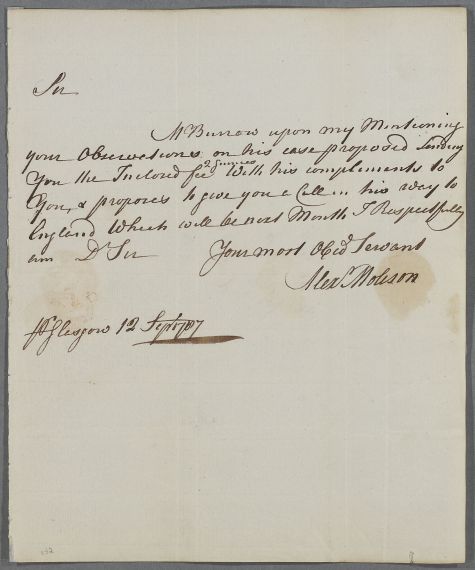 Sir
Mr Burrow upon my Mentioning
your Observationes on his case proposed Sending
You the Inclosed fee 2 Guineas With his complements to
You, & proposes to give you a Call in his way to
England Which will be next Month I Respectfully
am Dr Sir Your most Obedt Servant
Alexr
Glasgow 12 Septr 1787